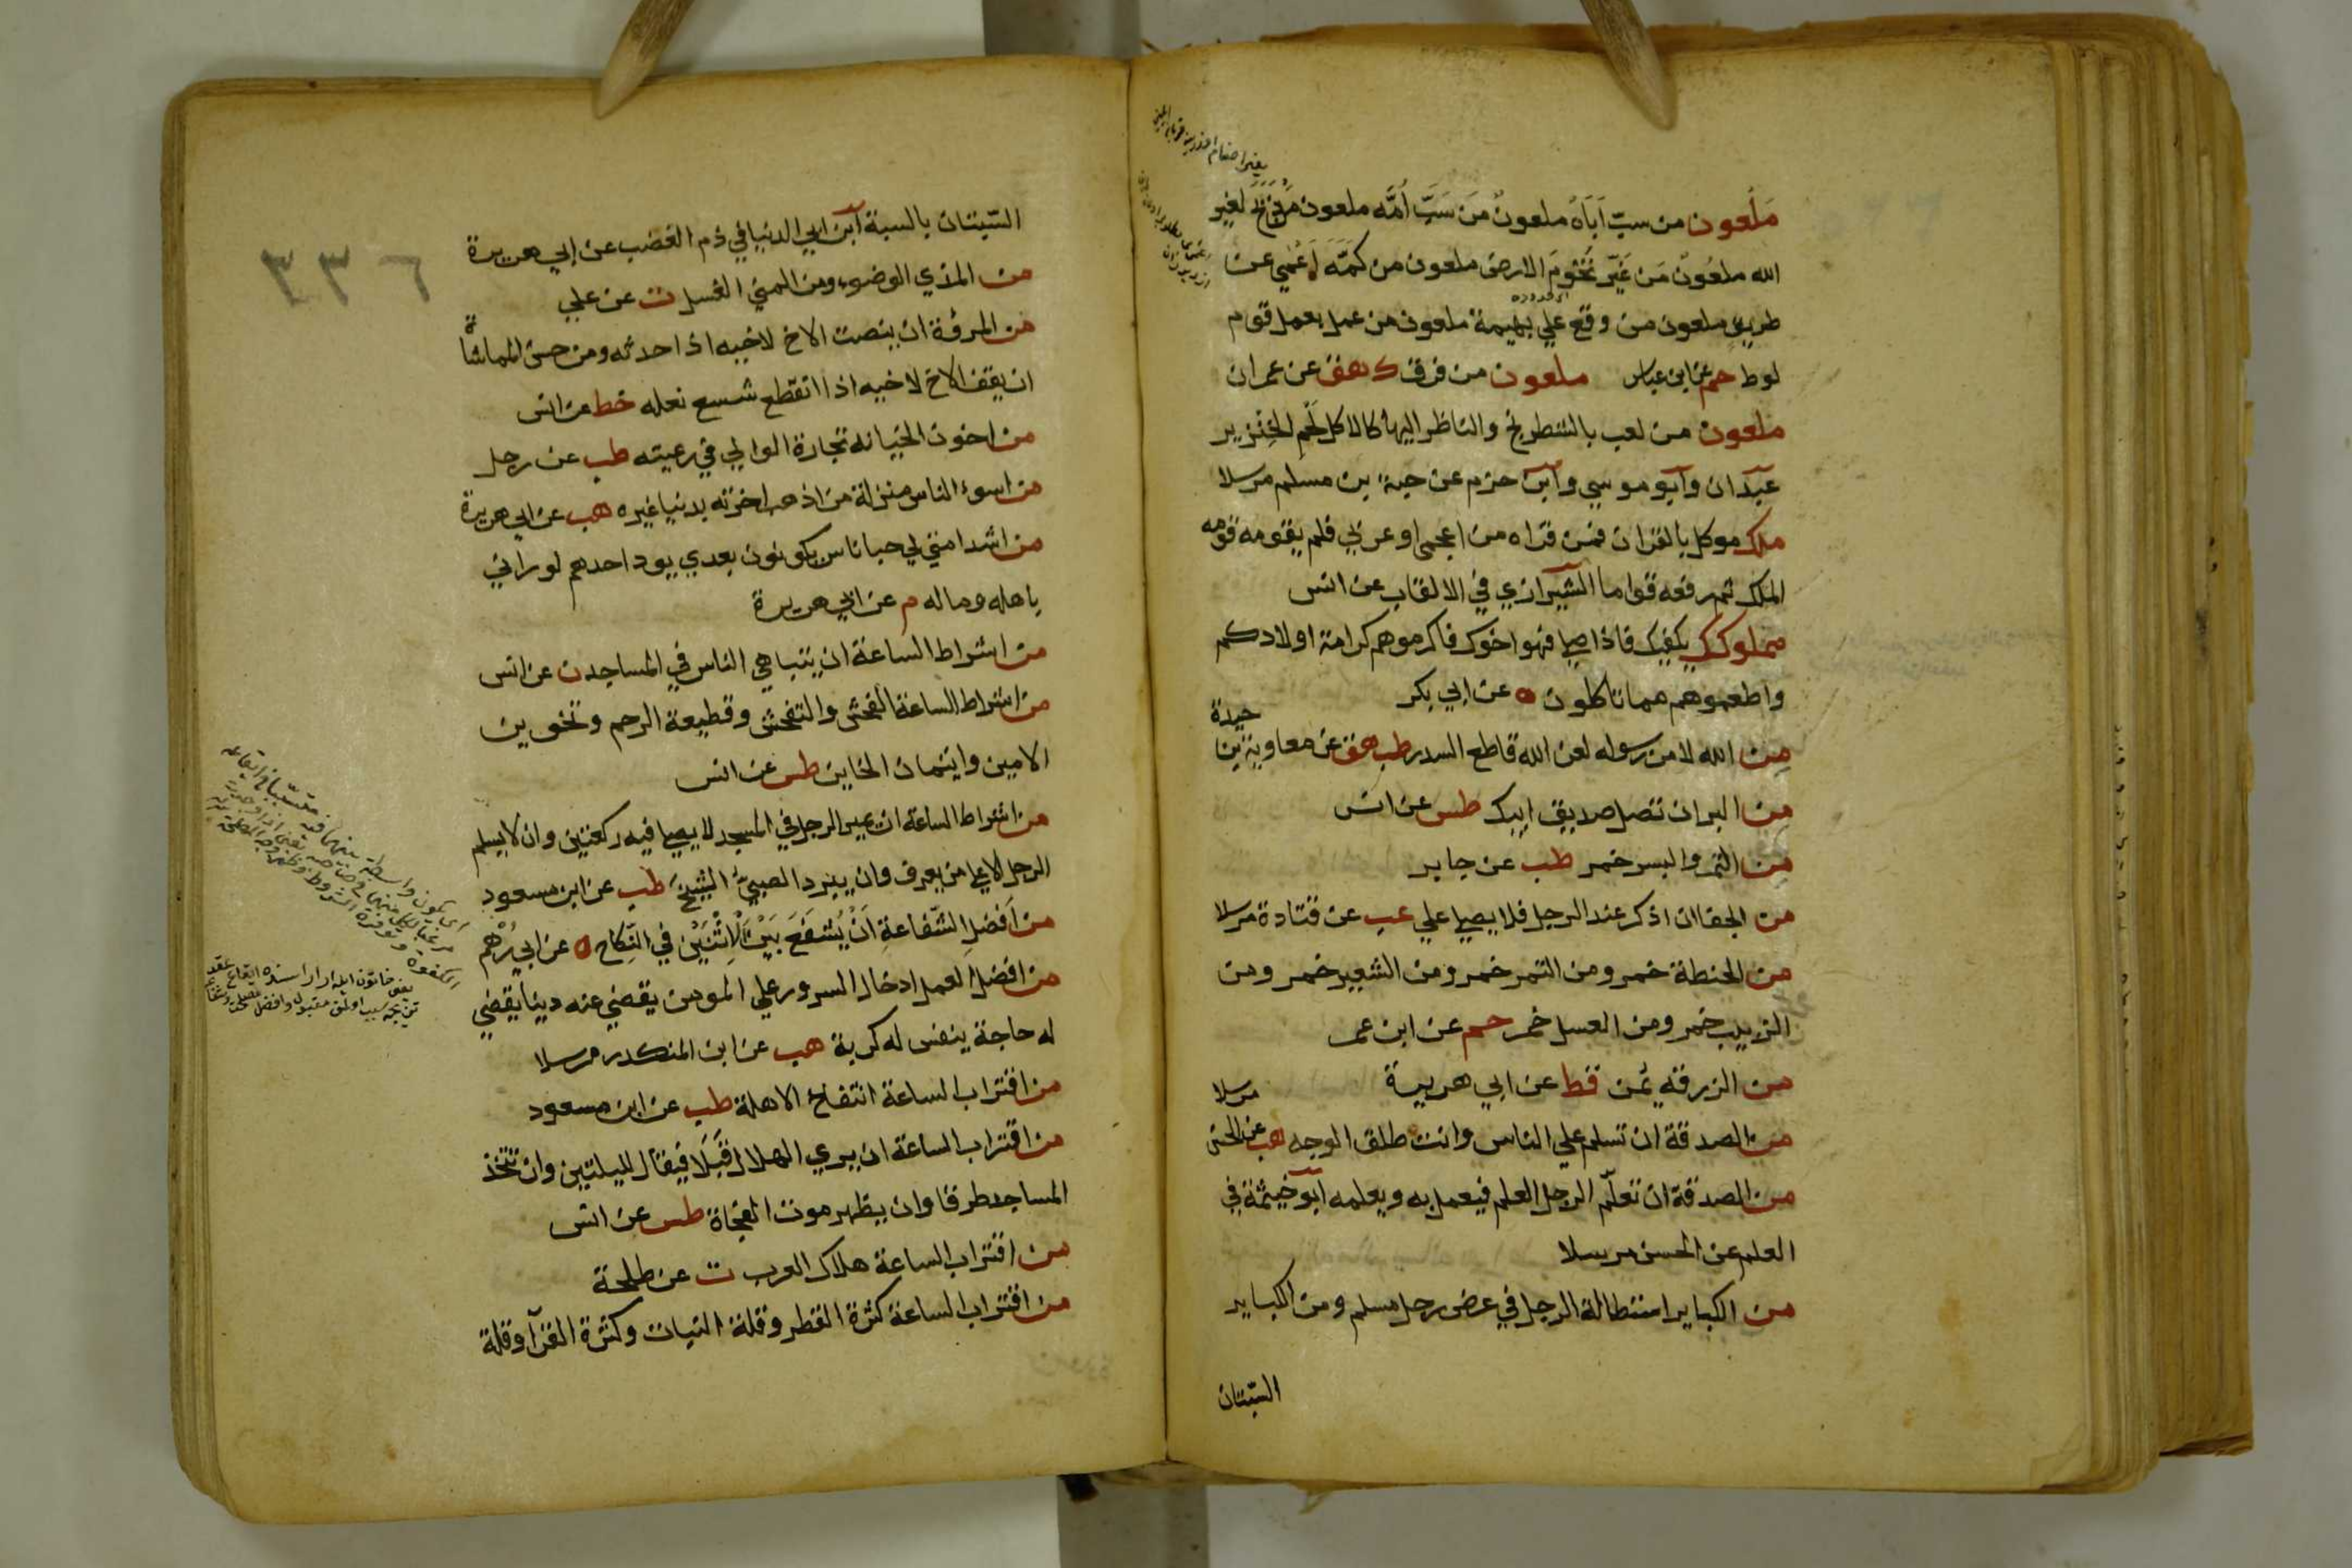 ملعون من سب اَبَاهُ ملعونٌ مَن سَبَّ اُمَّه ملعون مَن ذَبَحَ لغير
الله ملعُونٌ مَن غَيَّر تُخُومَ الارض ملعون من كَمَّهَ اَعْمٰي عن
طريق ملعون من وقع علي بهيمة ملعون من عمل بعمل قوم
لوط حم عن ابن عباس ملعون من فرق ك هق عن عمران
ملعون من لعب بالشطرنج والناظر اليها كالاكل لَحْمَ الخِنْزير
عبدان وابو موسي وابن حزم عن حبة بن مسلم مرسلا
ملك موكل بالقران فمن قراه من اعجمي او عربي فلم يقومه قومه
الملك ثم رفعه قواما الشيرازي في الالقاب عن انس
مملوكك يكفيك فاذا صلي فهو اخوك فاكرموهم كرامة اولادكم
واطعموهم مما تاكلون ه عن ابي بكر
حيدة
مِن الله لا من رسوله لعن الله قاطع السدر طب هق عن معاوية بن
من البر ان تصل صديق ابيك طس عن انس
مِن التمر والبسر خمر طب عن جابر
من الجفا ان اذكر عند الرجل فلا يصلي علي عب عن قتادة مرسلا
من الحنطة خمر ومن التمر خمر ومن الشعير خمر ومن
الزبيب خمر ومن العسل خمر حم عن ابن عمر
من الزرقة يمن خط عن ابي هريرة
مرسلا
من الصدقة ان تسلم علي الناس وانت طلق الوجه هب عن الحسن
من الصدقة ان تعلّم الرجل العلم فيعمل به ويعلمه ابو خيثمة في
العلم عن الحسن مرسلا
من الكباير استطالة الرجل في عرض رجل مسلم ومن الكباير
السّبتان
السّبتان بالسبة ابن ابي الدنيا في ذم الغضب عن ابي هريرة
من المذي الوضوء ومن المني الغسل ت عن علي
من المروّة ان ينصت الاخ لاخيه اذا حدثه ومن حسن المماشاة
ان يقف الاخ لاخيه اذا انقطع شسع نعله خط عن انس
من اخون الخيانه تجارة الوالي في رعيته طب عن رجل
من اسوء الناس منزلة من اذهب اخرته بدنيا غيره هب عن ابي هريرة
من اشد امتي لي حبا ناس يكونون بعدي يود احدهم لو راني
باهله وماله م عن ابي هريرة
من اشراط الساعة ان يتباهي الناس في المساجد ن عن انس
من اشراط الساعة الفحش والتفحش وقطيعة الرحم وتخوين
الامين وايتمان الخاين طس عن انس
من اشراط الساعة ان يمر الرجل في المسجد لا يصلي فيه ركعتين وان لا يسلم
الرجل الا علي من يعرف وان يبرد الصبيُّ الشيخَ طب عن ابن مسعود
من اَفضلِ الشّفاعةِ اَنْ يُشفَعَ بَيْنَ الْاِثنَيْنِ في النِّكاحِ ه عن ابي رُهْم
من افضل العمل ادخال السرور علي المومن يقضي عنه دينا يقضي
له حاجة ينفس له كربة هب عن ابن المنكدر مرسلا
من اقتراب الساعة انتفاخ الاهلة طب عن ابن مسعود
من اقتراب الساعة ان يري الهلال قَبَلًا فيقال لليلتين وان تتخذ
المساجد طرقا وان يظهر موت الفجاة طس عن انس
من اقتراب الساعة هلاك العرب ت عن طلحة
من اقتراب الساعة كثرة القطر وقلة النبات وكثرة القرآ وقلة
٣٣٦